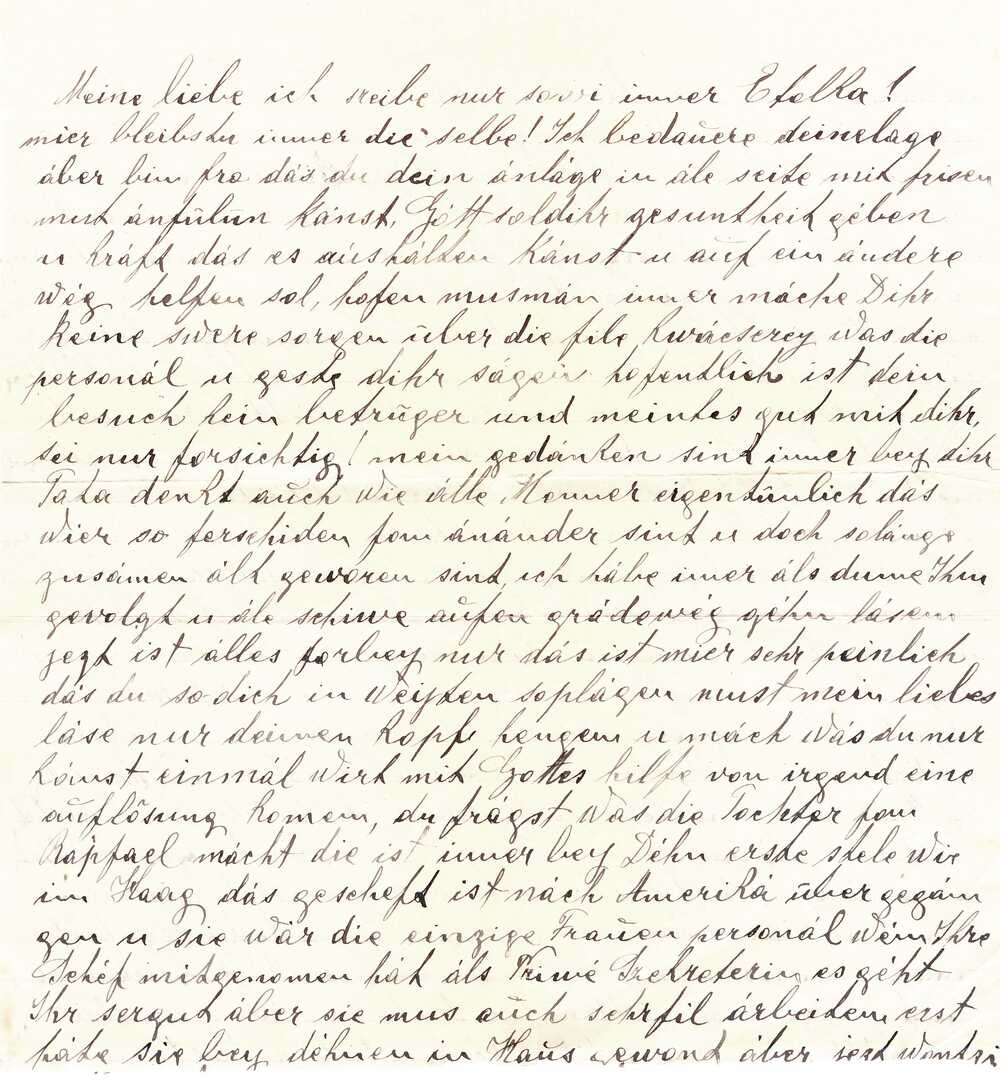 Meine liebe ich reibe nur sowi imer Etelka!
mier bleibstu imer die selbe! Ich bedaŭere deinelage
áber bin fro dás du dein ánláge in ále seite mit frisen
mut ánfülün kánst, Gótt soldihr gesuntheit gében
u kráft dás es aúshálten kánst u aŭf ein ándere
wég helfen sol, hofen musmán imer máche Dihr
keine swere sorgen über die file kurácserey was die
personál u geste dihr ságen hofentlich ist dein
besuch kein betrüger und meintes gut mit dihr,
sei nur forsichtig! mein gedánken sint imer bey dihr
Tata denkt aŭch wie álle Menner eigentümlich dás
wier so ferschiden fom ánánder sint u doch solánge
zusámen ált geworen sint, ich hábe imer áls dume Ihm
gevolgt u ále schiwe aŭfen grádewég géhn lásen
jezt ist álles forbey nur dás ist mier sehr peinlich
dás du so dich in weijten soplágen must mein liebes
láse nur deinen kopf hengen u mách wás du nur
kánst einmál wirt mit Gottes hilfe von irgend eine
aŭflösung komen, du frágst was die Tochter fon
Rapfael mácht die ist imer bey Déhn erste stele wie
im Haag dás gescheft ist nách Ameriká üwer gegán
gen u sie wár die einzige Fraŭen personál wém Ihre
Schéf mitgenomen hát áls Priwé Szekreterin es géht
Ihr sergut áber sie mus aŭch sehrfil árbeiten erst
háte sie bey déhnen in Haŭs gewont áber jest wontsi